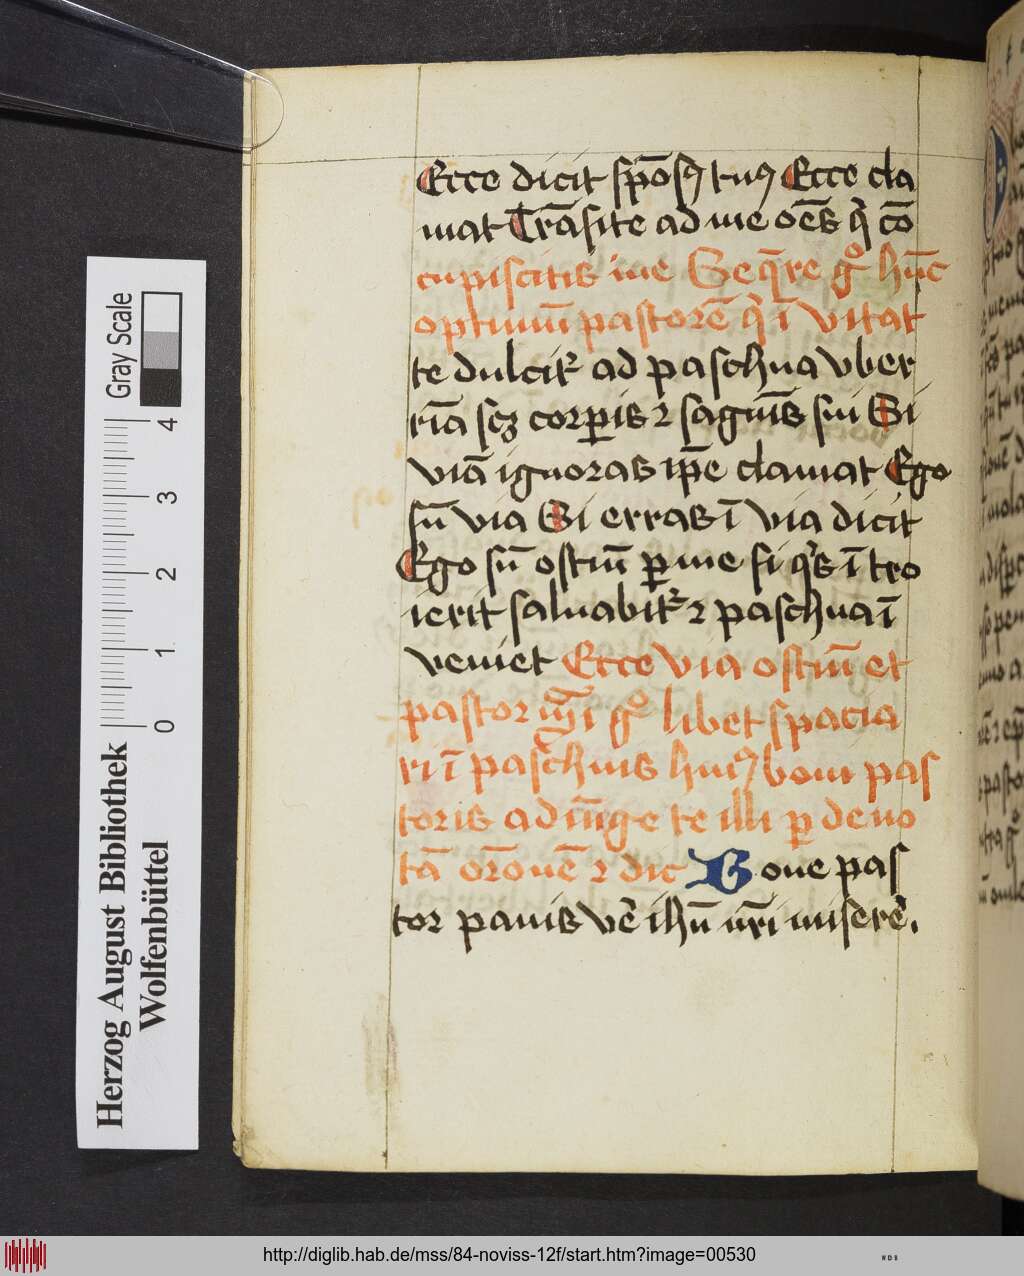 Ecce dicit sp̄os⁹ tu⁹ Ecce cla
mat Trāsite ad me oēs q̇ cō
cupiscitis me Seq̄re gͦ hūc
optimū pastorē q̇ ī vitat
te dulcit᷑ ad paschua vber
rīa scꝫ corꝑis ⁊ sāguīs sui Si
viā ignoras ip̄e clamat Ego
sū via Si erras ī via dicit
Ego sū ostiū ꝑ me si q̇s ī tro
ierit saluabit᷑ ⁊ paschua ī
veniet Ecce via ostiū et
pastor gͦ libet spacia
ri ī paschuis hui⁹ boni pas
toris adiūge te illi ꝑ deuo
tā orōnē ⁊ dic Bone pas
tor panis vē ihū nr̄i miserē.
Gray Scale
0 1 2 3 4
Herzog August Bibliothek
Wolfenbüttel
http://diglib.hab.de/mss/84-noviss-12f/start.htm?image=00530